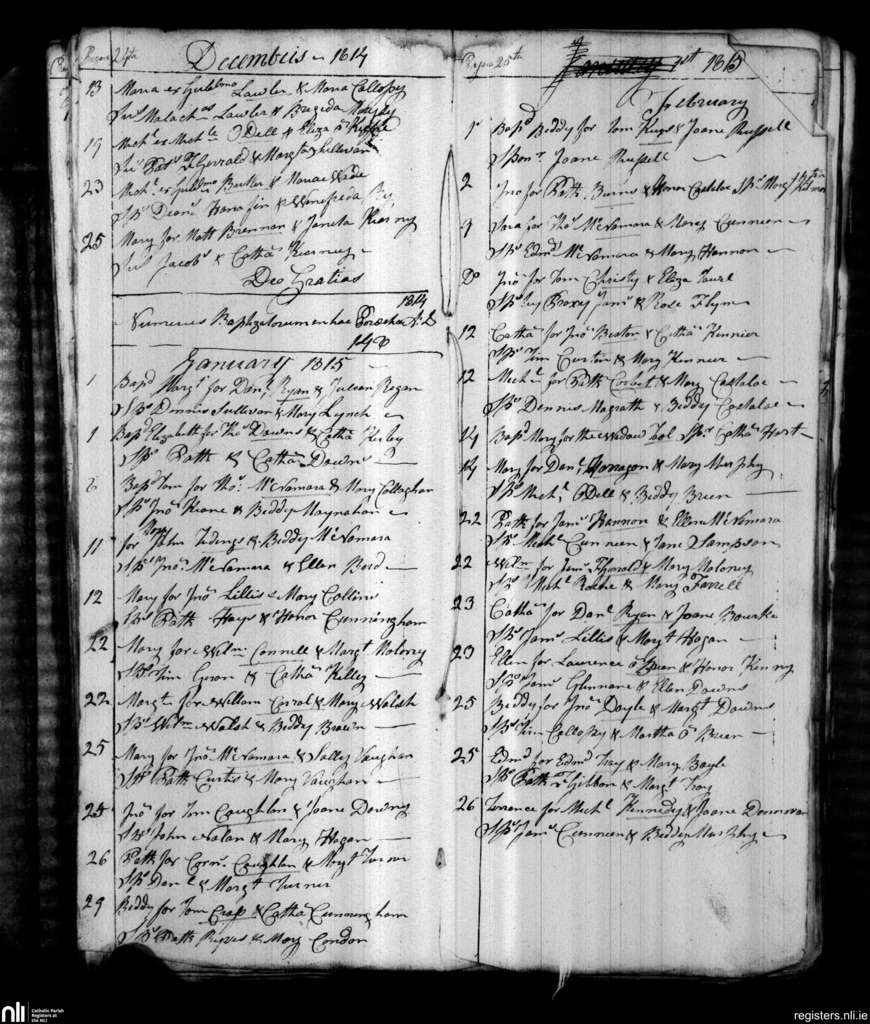 Decembris 1814
13 Maria ex Gulielmo Lawler & Maria Collopy
Lawler & Brigeda
19 Michl. ex Michle ODell & Eliza
Fzgerrald & Margta Shellevan
23 Michl. ex Guldmo Butler & Mariae Wade
Sps Deans Hanafin & Winefreda
25 Mary for Matt Brennan & Janeta Kearny
Jacobs & Catha Kearney
Deo Gratias
1814
Numerus Baptizatorum
148
January 1815
1 Bapd Margt for Danl Ryan & Julian Regan
Sps Dennis Sullevan & Mary Lynch
1 Bapd Elizabeth for Thos Downs & Catha
Sps Patk & Catha Downs
6 Bapd Tom for Thos McNamara & Mary Callaghan
Sps Jno Keane & Biddy Moynahan
Mary
11 for John & Biddy McNamara
Sps Jno McNamara & Ellen
12 Mary for Jno Lillis & Mary Collins
Sps Patk Hays & Honor Cunningham
22 Mary for Willm Connell & Margt Molony
Sps Tim & Catha Kelley
22 Margt for William Carrol & Mary Walsh
Sps Willm Walsh & Biddy Brown
25 Mary for Jno McNamara & Salley Vaughan
Sps Patk Curtis & Mary Vaughan
25 Jno for Tom Coughlan & Joane Downy
Sps John Nalan & Mary Hogan
26 Patk for Corns Coughlan & Margt Turner
Sps Danl & Margt Turner
29 Biddy for Tom & Catha Cunningham
Sps Patk & Mary Condon
25th 1st 1815
February
1st Bapd Biddy for Tom Hays & Joane Russell
Spons Joane Russell
2 Jno for Patk Burns & Honor Costaloe Sps Margt
9 for Thos McNamara & Mary Cunneen
Sps Edmd McNamara & Mary Hannon
Do Jno for Tom Christy & Eliza
Sps by Proxy Jams & Rose Flynn
12 Catha for Jno Beaton & Catha Kennier
Sps Tim Curtin & Mary Kenneer
12 Michl for Patk Corbet & Mary Costaloe
Sps Dennis Magrath & Biddy Costaloe
14 Bapd Mary for the Widow Sps Catha Hart
14 Mary for Danl & Mary Murphy
Sps Michl ODell & Biddy Breen
22 Patk for Jams Hannon & Ellen McNamara
Sps Michl Cunneen & Jane Sampson
22 Willm for Jams & Mary Moloney
Sps Michl Roche & Mary Farrell
23 Catha for Danl Ryan & Joane Bourke
Sps Jams Lillis & Margt Hogan
23 Ellen for Lawrence & Honor Kenny
Sps Jams & Ellen Downs
25 Biddy for Jno Doyle & Margt Downs
Sps Tim Collopy & Martha O Brien
25 Edmd for Edmd Troy & Mary Boyle
Sps Patk Fzgibbon & Margt Troy
26 Terrance for Michl Kennedy & Joane Donnovan
Sps Jams Cunneen & Biddy Murphy
nli
Catholic Parish
Registers at
the NLI
registers.nli.ie